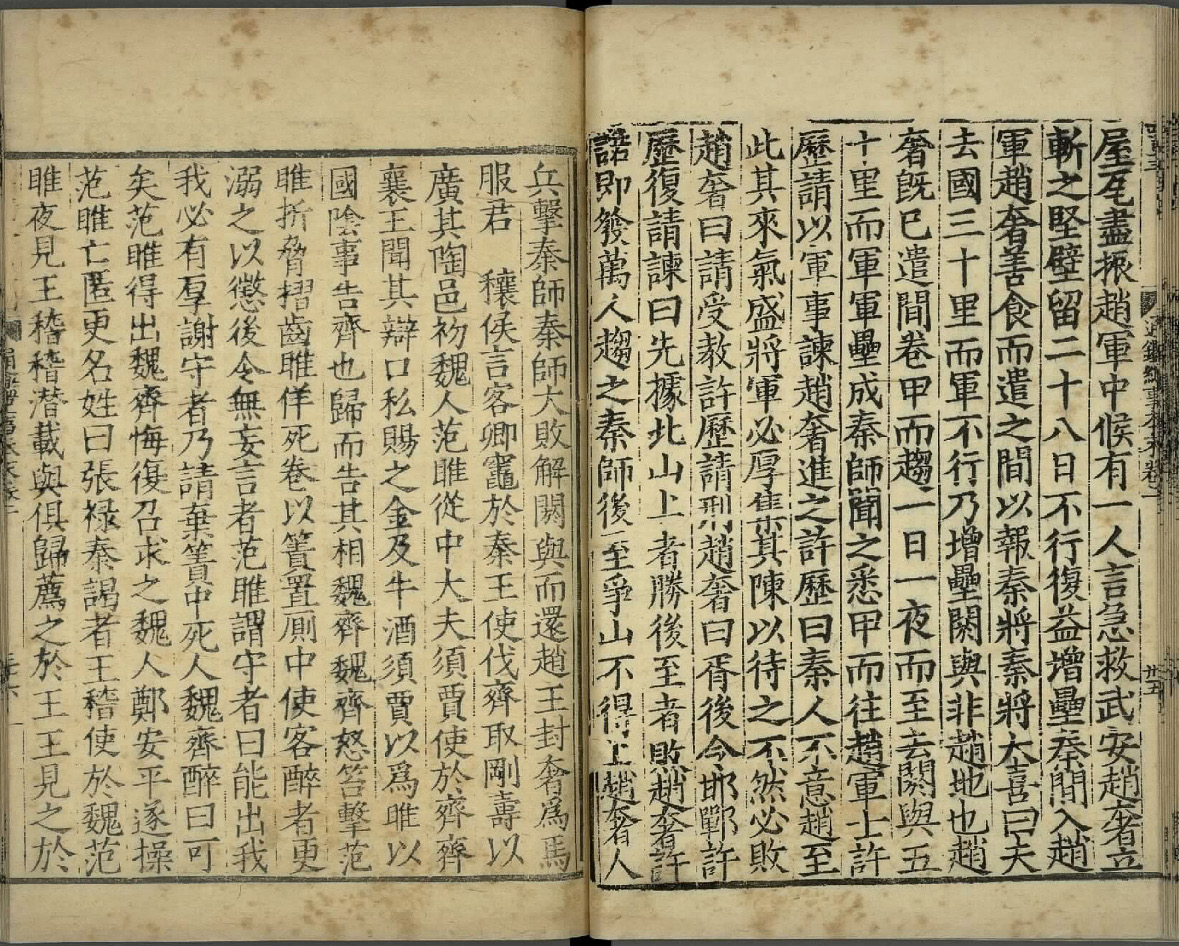 屋瓦盡振趙軍中候有一人言急救武安趙奢立
斬之堅壁留二十八日不行復益增壘秦間入趙
軍趙奢善食而遣之間以報秦將秦將大喜曰夫
去國三十里而軍不行乃增壘閼與非趙地也趙
奢旣已遣間卷甲而趨一日一夜而至去閼與五
十里而軍軍壘成秦師聞之悉甲而往趙軍士許
歷請以軍事諫趙奢進之許歷曰秦人不意趙至
此其來氣盛將軍必厚集其陳以待之不然必敗
趙奢曰請受教許歷請刑趙奢曰胥後令邯鄲許
歷復請諫曰先據北山上者勝後至者敗趙奢許
諾即發萬人趨之秦師後至爭山不得上趙奢人
兵擊秦師秦師大敗解閼與而還趙王封奢爲馬
服君　穰侯言客卿竈於秦王使伐齊取剛壽以
廣其陶邑初魏人范睢從中大夫須賈使於齊齊
襄王聞其辯口私賜之金及牛酒須賈以爲睢以
國陰事告齊也歸而告其相魏齊魏齊怒笞擊范
睢折脅摺齒睢佯死卷以簀置厠中使客醉者更
溺之以懲後令無妄言者范睢謂守者曰能出我
我必有厚謝守者乃請棄簀中死人魏齊醉曰可
矣范睢得出魏齊悔復召求之魏人鄭安平遂操
范睢亡匿更名姓曰張祿秦謁者王稽使於魏范
睢夜見王稽稽潛載與俱歸薦之於王王見之於